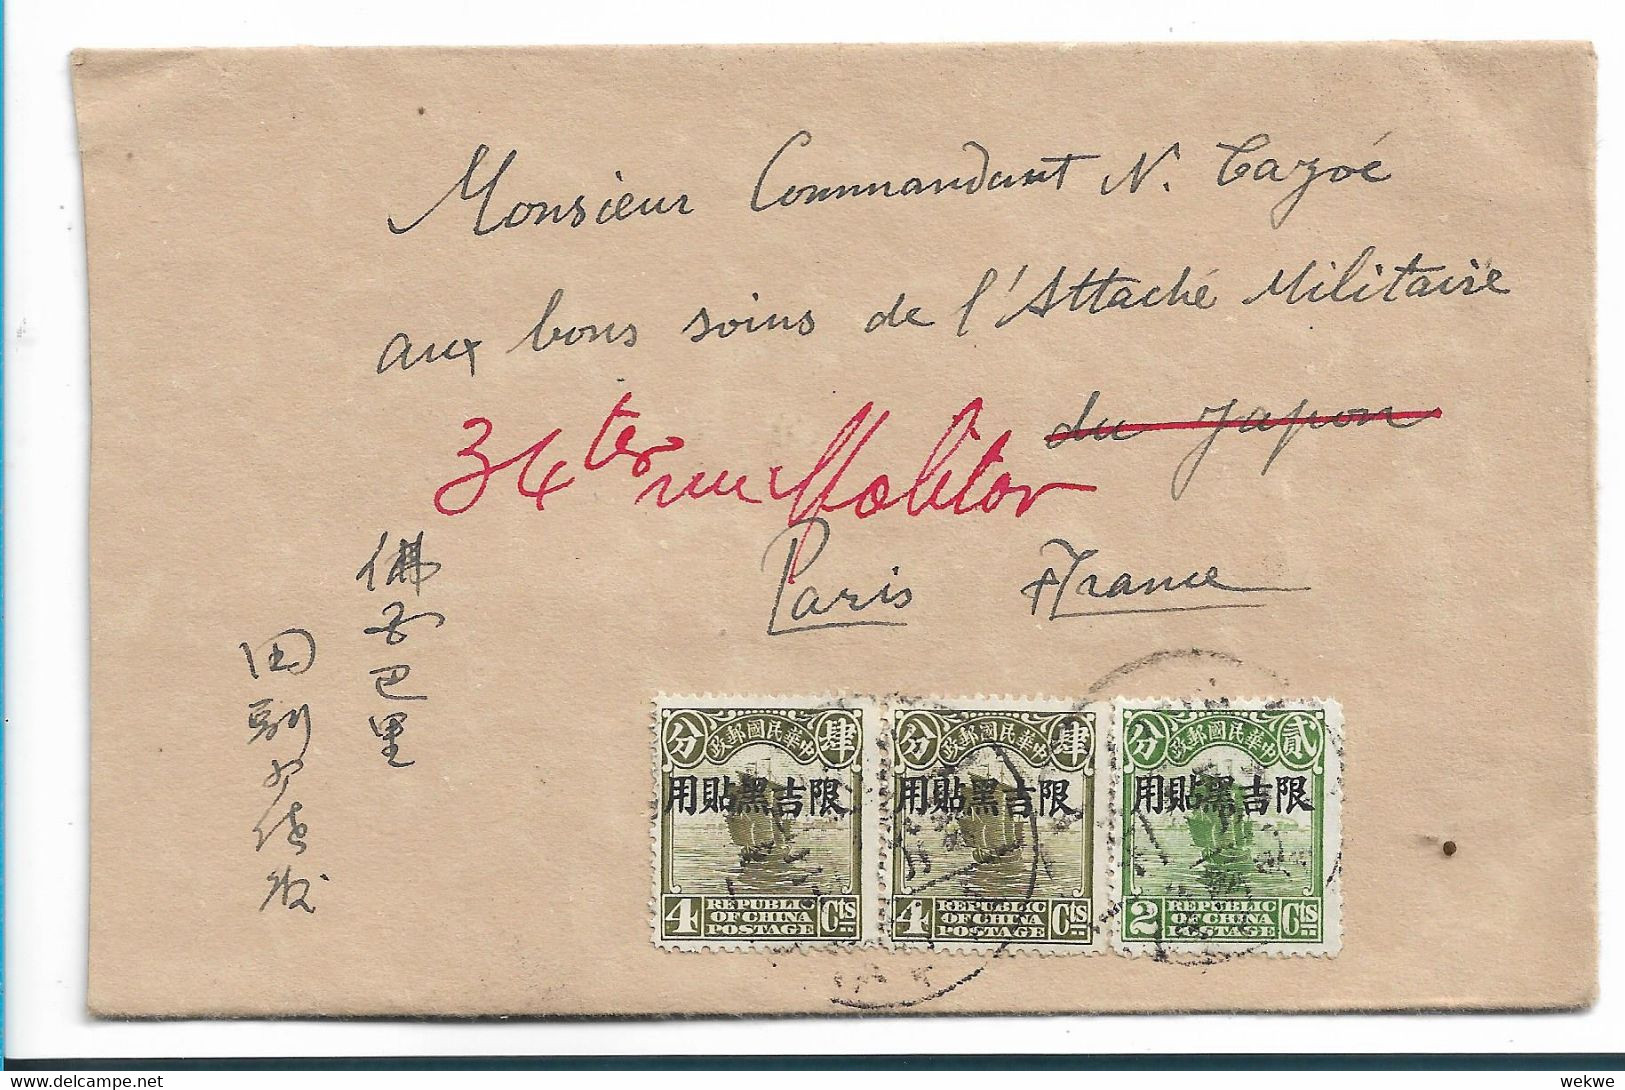 Monsieur Commandant N. Tazoé
aux bons soins de l'Attaché Militaire
du Japon
34 ter rue Molitor
Paris France
佛京巴里
分 政郵國民華中 肆
用貼黑吉限
4 REPUBLIC OF CHINA POSTAGE Cts
分 政郵國民華中 肆
用貼黑吉限
4 REPUBLIC OF CHINA POSTAGE Cts
分 政郵國民華中 貳
用貼黑吉限
2 REPUBLIC OF CHINA POSTAGE Cts
wekwe